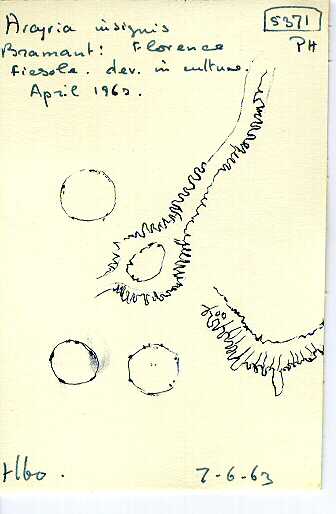 Arcyria insignis
5371
Bramant: Florence
PH
Fiesole. dev. in culture.
April 1963.
Albo.
7-6-63